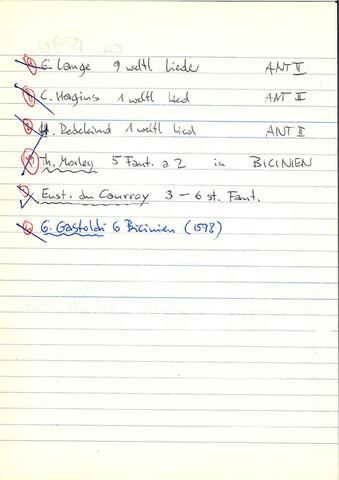 G. Lange 9 weltl Lieder ANT II
C. Hagius 1 weltl Lied ANT II
H. Dedekind 1 weltl Lied ANT II
Th. Morley 5 Fant. a 2 in BICINIEN
Eust. du Caurroy 3 – 6 st. Fant.
G. Gastoldi 6 Bicinien (1598)